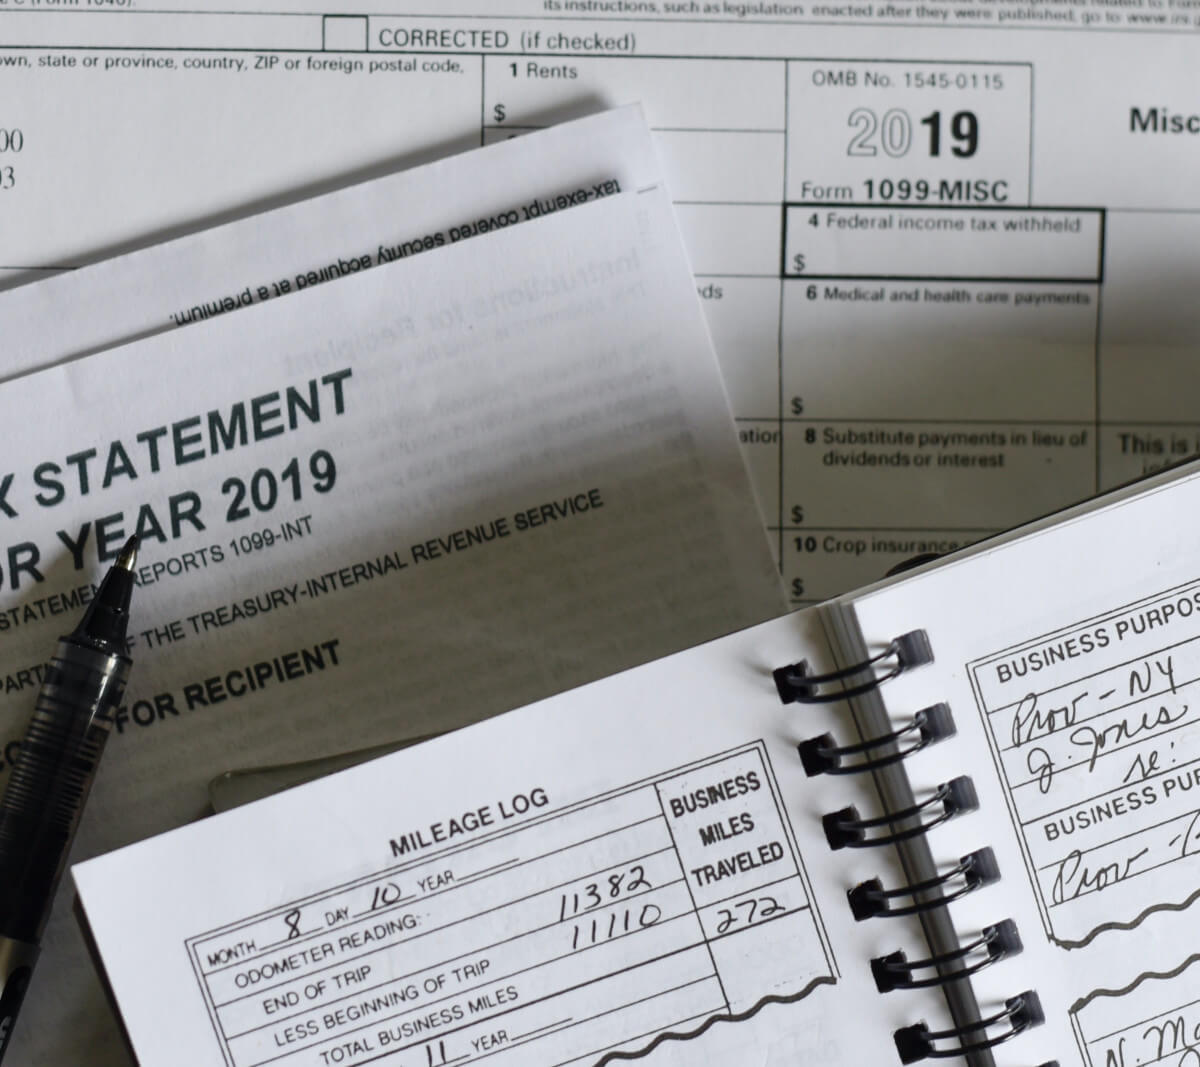 its instructions, such as legislation enacted after they were published, go to www.irs.g
CORRECTED (if checked)
own, state or province, country, ZIP or foreign postal code,
1 Rents
$
OMB No. 1545-0115
2019
Form 1099-MISC
Misc
00
03
4 Federal income tax withheld
$
6 Medical and health care payments
$
8 Substitute payments in lieu of
dividends or interest
$
This is i
10 Crop insurance
$
tax-exempt covered security acquired at a premium.
Instructions for Recipient
X STATEMENT
OR YEAR 2019
STATEMENT REPORTS 1099-INT
OF THE TREASURY-INTERNAL REVENUE SERVICE
FOR RECIPIENT
MILEAGE LOG
MONTH 8 DAY 10 YEAR
BUSINESS
MILES
TRAVELED
ODOMETER READING:
END OF TRIP 11382
LESS BEGINNING OF TRIP 11110
TOTAL BUSINESS MILES 272
11 YEAR
BUSINESS PURPOS
Prov - NY
J. Jones
re:
BUSINESS PUR
Prov -
N. Mc